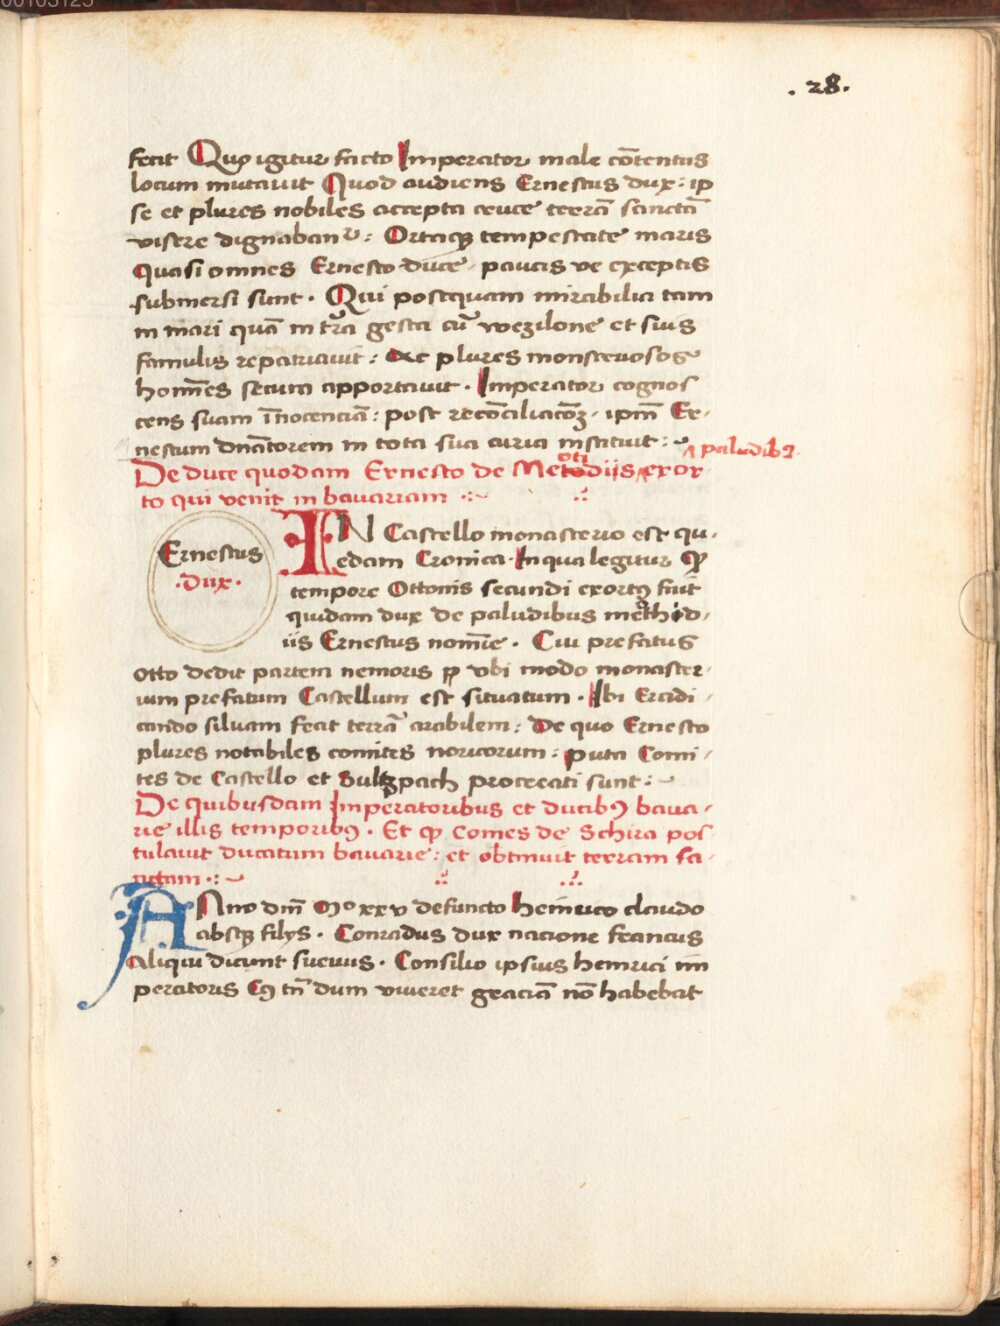 .28.
fecit Quo igitur facto Imperator male cōtentus
locum mutauit Quod audiens Ernestus dux: ip
se et plures nobiles accepta cruce terrā sanctā
visere dignabant̄: Ortaqꝫ tempestate maris
Quasi omnes Ernesto duce paucis ve exceptis
submersi sunt. Qui postquam mirabilia tam
in mari quā in tr̄a gesta cū wezilone et suis
famulis repatriauit: Ac plures monstruosos
hoīnes secum apportauit. Imperator cognos
cens suam īnocenciā: post recōciliacōꝫ ipm̄ Er,
nestum dn̄atorem in tota sua curia instituit:
paludibꝰ
De duce quodam Ernesto de Metodijs exor
to qui venit in bauariam
Ernestus
.dux.
IN Castello monasterio est qu,
edam Cronica In qua legitur ꝙ
tempore Ottonis secundi exortꝰ fuit
quidam dux de paludibus methid,
iis Ernestus nomīe. Cui prefatus
Otto dedit partem nemoris ꝑ vbi modo monaster,
ium prefatum Castellum est situatum. Ibi Eradi,
cando siluam fecit terrā arabilem: De quo Ernesto
plures notabiles comites noricorum: puta Comi,
tes de Castello et Sultzpach procreati sunt:
De quibusdam Imperatoribus et ducibꝰ baua,
rie illis temporibꝰ. Et ꝙ Comes de Schira pos
tulauit ducatum bauarie: et obtinuit terram sa,
nctam
ANno dm̄ Mᵒ xxv defuncto heinrico claudo
absqꝫ filijs. Conradus dux nacione francus
Aliqui dicunt sueuus. Consilio ipsius heinrici im
peratoris Cꝰ tn̄ dum viueret graciā nō habebat